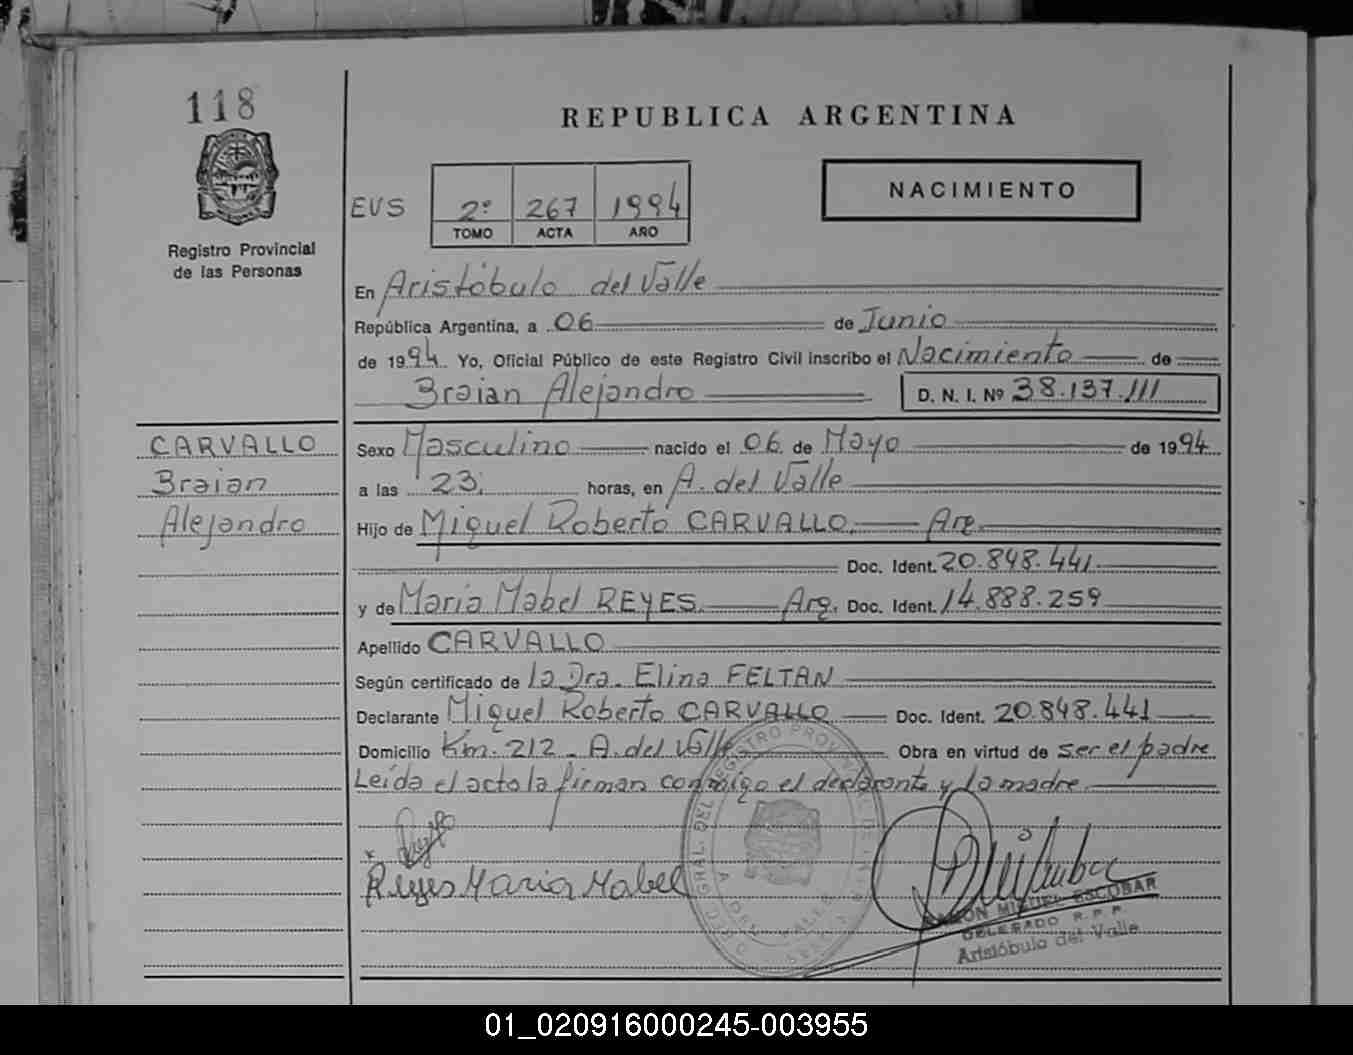 118
REPUBLICA ARGENTINA
NACIMIENTO
EVS
2º 267 1994
TOMO ACTA AÑO
Registro Provincial
de las Personas
En Aristóbulo del Valle
República Argentina, a 06 de Junio
de 1994. Yo, Oficial Público de este Registro Civil inscribo el Nacimiento de
Braian Alejandro D. N. I. Nº 38.137.111
CARVALLO
Braian
Alejandro
Sexo Masculino nacido el 06 de Mayo de 1994
a las 23. horas, en A. del Valle
Hijo de Miguel Roberto CARVALLO. Arg.
Doc. Ident. 20.848.441
y de Maria Mabel REYES. Arg. Doc. Ident. 14.888.259
Apellido CARVALLO
Según certificado de la Dra. Elina FELTAN
Declarante Miguel Roberto CARVALLO Doc. Ident. 20.848.441
Domicilio Km. 212 - A. del Valle Obra en virtud de ser el padre
Leída el acta la firman conmigo el declarante y la madre
Reyes Maria Mabel
RAMÓN MIGUEL ESCOBAR
DELEGADO R. P. P.
Aristóbulo del Valle
01_020916000245-003955